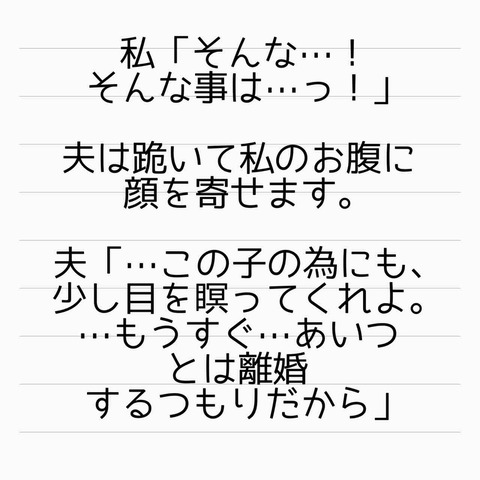 私「そんな…！
そんな事は…っ！」
夫は跪いて私のお腹に
顔を寄せます。
夫「…この子の為にも、
少し目を瞑ってくれよ。
…もうすぐ…あいつ
とは離婚
するつもりだから」